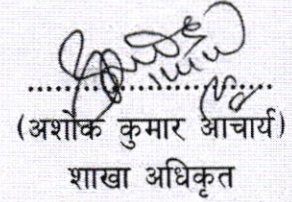 (अशोक कुमार आचार्य)
शाखा अधिकृत